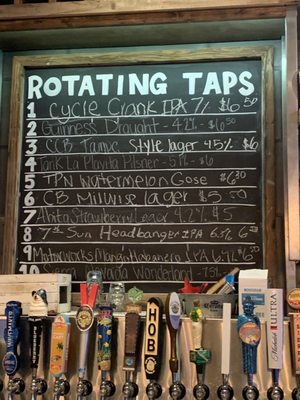 ROTATING TAPS
1 Cycle Crank IPA 7% $6.50
2 Guinness Draught - 4.2% - $6.50
3 CCB Tampa Style lager 4.5% $6
4 Tank La Playita Pilsner - 5.1% - $6
5 TPN Watermelon Gose $6.50
6 CB Millwise lager $5
7 Abita Strawberry Lager 4.2% $5
8 7th Sun Headbanger IPA 6.5%
9 Motorworks Habanero IPA
10 Sierra Nevada Wonderland - 7.5%
HOB
Michelob
ULTRA